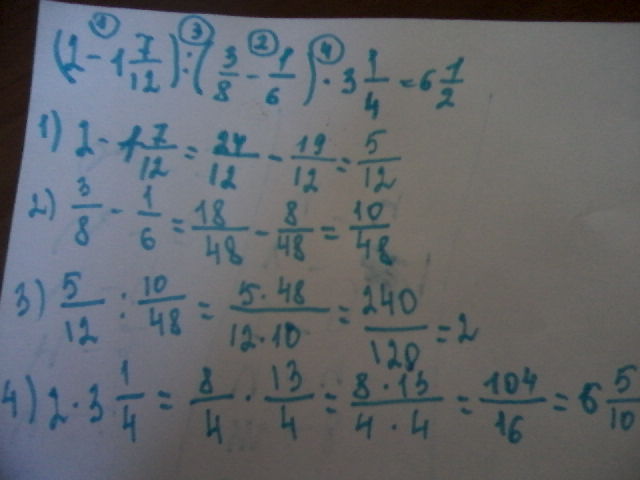 (2 - 1 7/12) : (3/8 - 1/6) · 3 1/4 = 6 1/2
① ③ ② ④
1) 2 - 1 7/12 = 24/12 - 19/12 = 5/12
2) 3/8 - 1/6 = 18/48 - 8/48 = 10/48
3) 5/12 : 10/48 = 5·48/12·10 = 240/120 = 2
4) 2 · 3 1/4 = 8/4 · 13/4 = 8·13/4·4 = 104/16 = 6 5/10